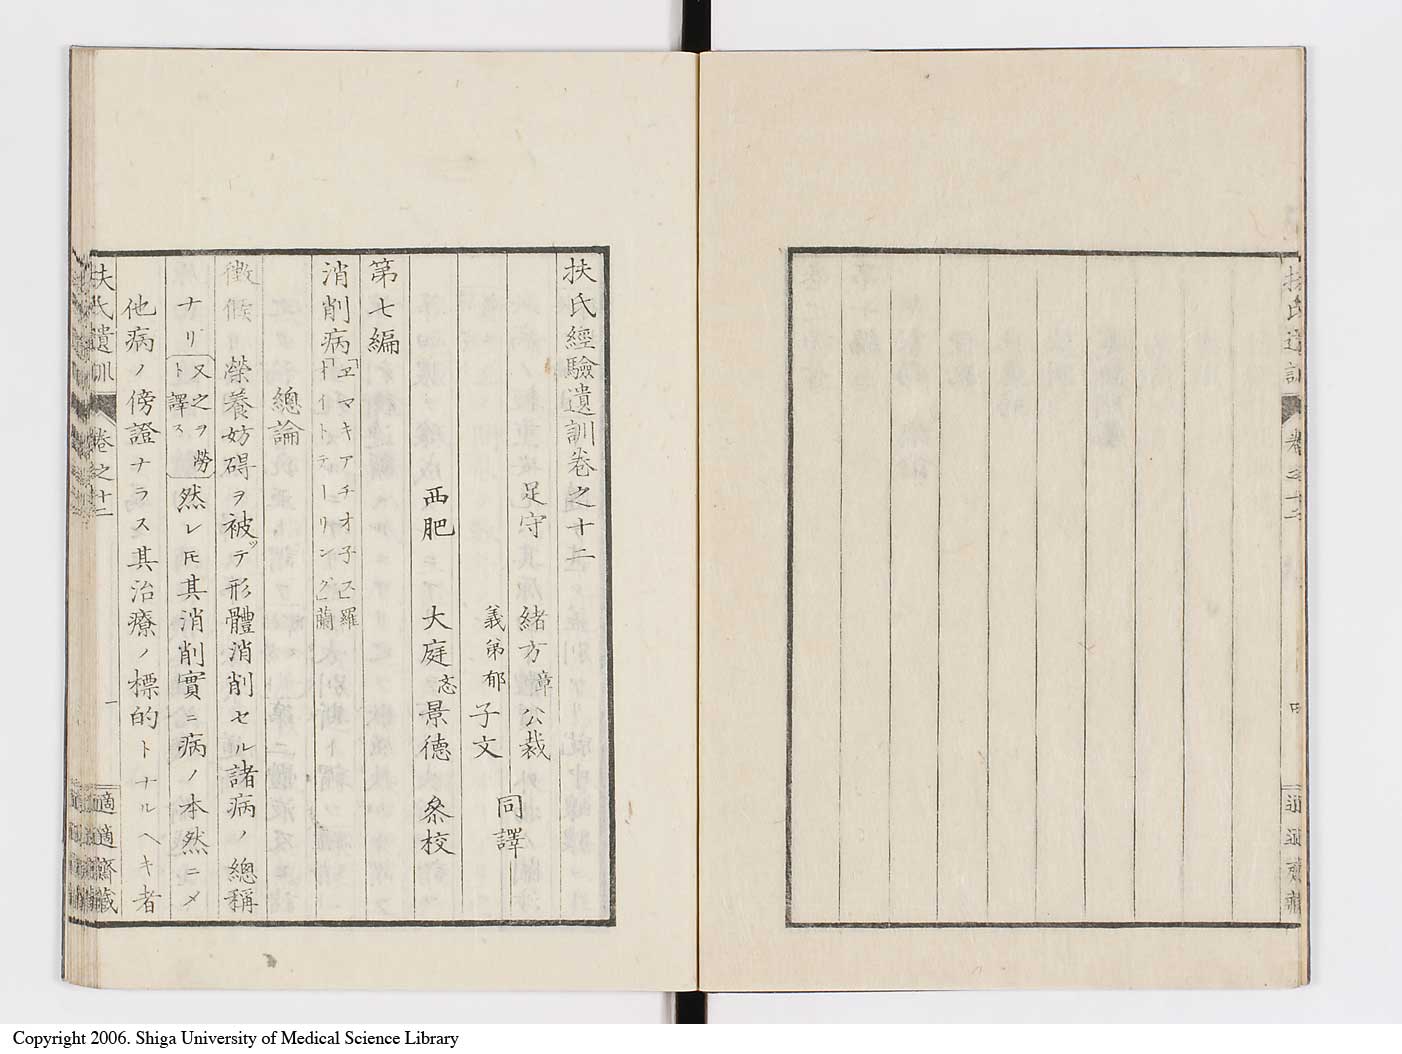 扶氏經驗遺訓卷之十二
足守 緒方章公裁
義弟郁子文
同譯
西肥 大庭忞景德 叅校
第七編
消削病「エマキアチオ子ス」羅「オイトテーリング」蘭
總論
徴候 榮養妨碍ヲ被ッテ形體消削セル諸病ノ總稱
ナリ又之ヲ勞ト譯ス然レㇳモ其消削實ニ病ノ本然ニメ
他病ノ傍證ナラス其治療ノ標的トナルヘキ者
扶氏遺訓 卷之十二 一 適適齋藏
扶氏遺訓 卷之十二
Copyright 2006. Shiga University of Medical Science Library